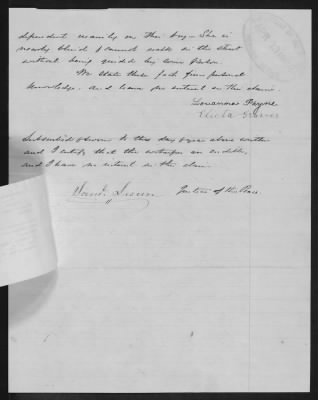 dependent mainly on their boy - She is
nearly blind & cannot walk in the street
without being guided by some person.
We state these facts from personal
knowledge. and have no interest in the claim.
Louanna Payne
Subscribed & sworn to this day & year above written
and I certify that the witnesses are credible,
and I have no interest in the claim.
Saml Justice of the Peace